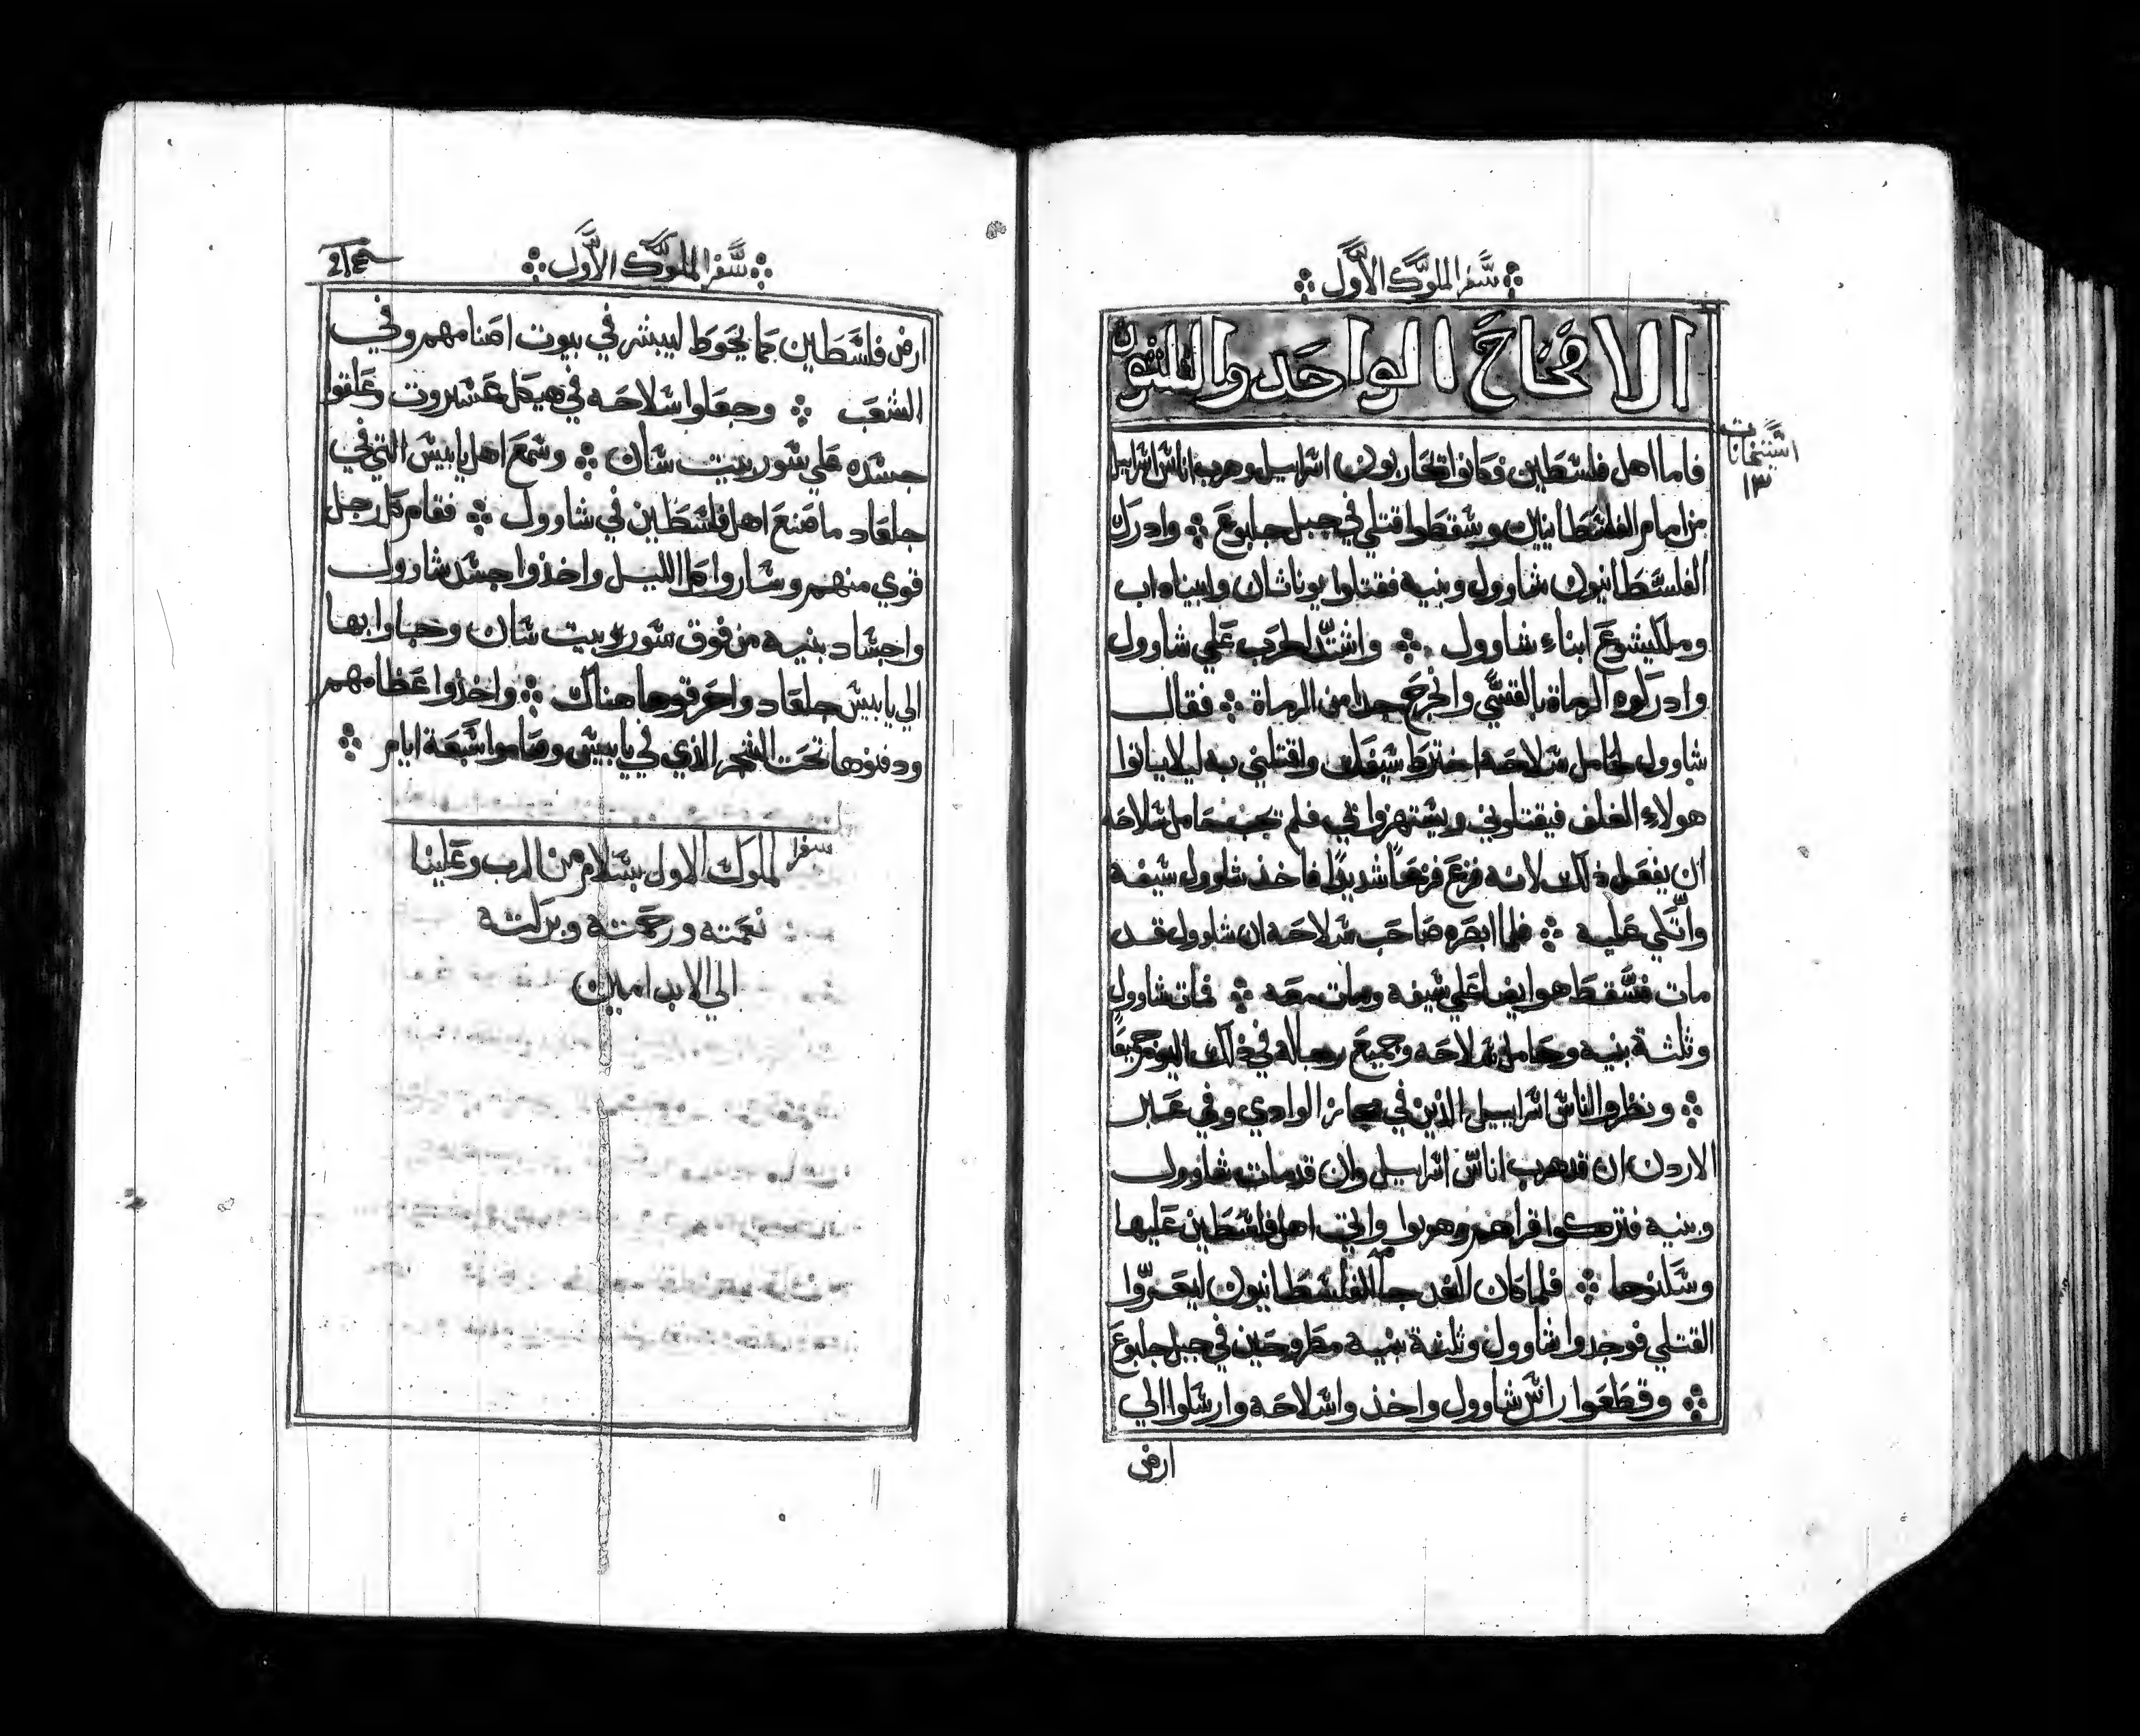 سفر الملوك الاول
الافتحاح الواحد والثلثون
اشتيخانات
١٣
فاما اهل فلسطين فكانوا يتحاربون اسراييل وهرب اناس اسراييل
من امام الفلسطانيين وسقطوا قتلي في جبل جلبوع ܀ وادرك
الفلسطانيون شاوول وبنيه فقتلوا يوناثان وابيناداب
وملكيشوع ابناء شاوول ܀ واشتد الحرب علي شاوول
وادركوه الرماة بالقسي وانجرح جدا من الرماة ܀ فقال
شاوول لحامل سلاحه اخترط سيفك واقتلني به ليلا ياتوا
هولاء الغلف فيقتلوني ويستهزوا في فلم يجب حامل سلاحه
ان يفعل ذلك لانه فزع فزعا شديدا فاخذ شاوول سيفه
واتكي عليه ܀ فلما ابصره صاحب سلاحه ان شاوول قد
مات فسقط هو ايضا علي سيفه ومات معه ܀ فمات شاوول
وثلثة بنيه وحامل سلاحه وجميع رجاله في ذلك اليوم جميعا
܀ ونظروا الناس اسراييل الذين في الوادي وفي عبر
الاردن ان قد هرب اناس اسراييل وان قد مات شاوول
وبنيه فتركوا قراهم وهربوا واتي اهل فلسطين عليها
وسكنوها ܀ فلما كان الغد جا الفلسطانيون ليعروا
القتلي فوجدوا شاوول وثلثة بنيه مطروحين في جبل جلبوع
܀ وقطعوا راس شاوول واخذوا سلاحه وارسلوا الي
ارض
سفر الملوك الاول
ارض فلسطين كما يحوط ليبشر في بيوت اصنامهم وفي
الشعب ܀ وجعلوا سلاحه في هيكل عشروت وعلقوا
جسده علي سور بيت شان ܀ وسمع اهل يابيس التي في
جلعاد ما صنع اهل فلسطين في شاوول ܀ فقام كل رجل
قوي منهم وساروا كل الليل واخذوا جسد شاوول
واجساد بنيه من فوق سور بيت شان وجاوا بها
الي يابيس جلعاد واحرقوها هناك ܀ واخذوا عظامهم
ودفنوها تحت الشجر الذي في يابيس وصاموا سبعة ايام ܀
سفر الملوك الاول بسلام من الرب وعلينا
نعمته ورحمته وبركته
الي الابد امين